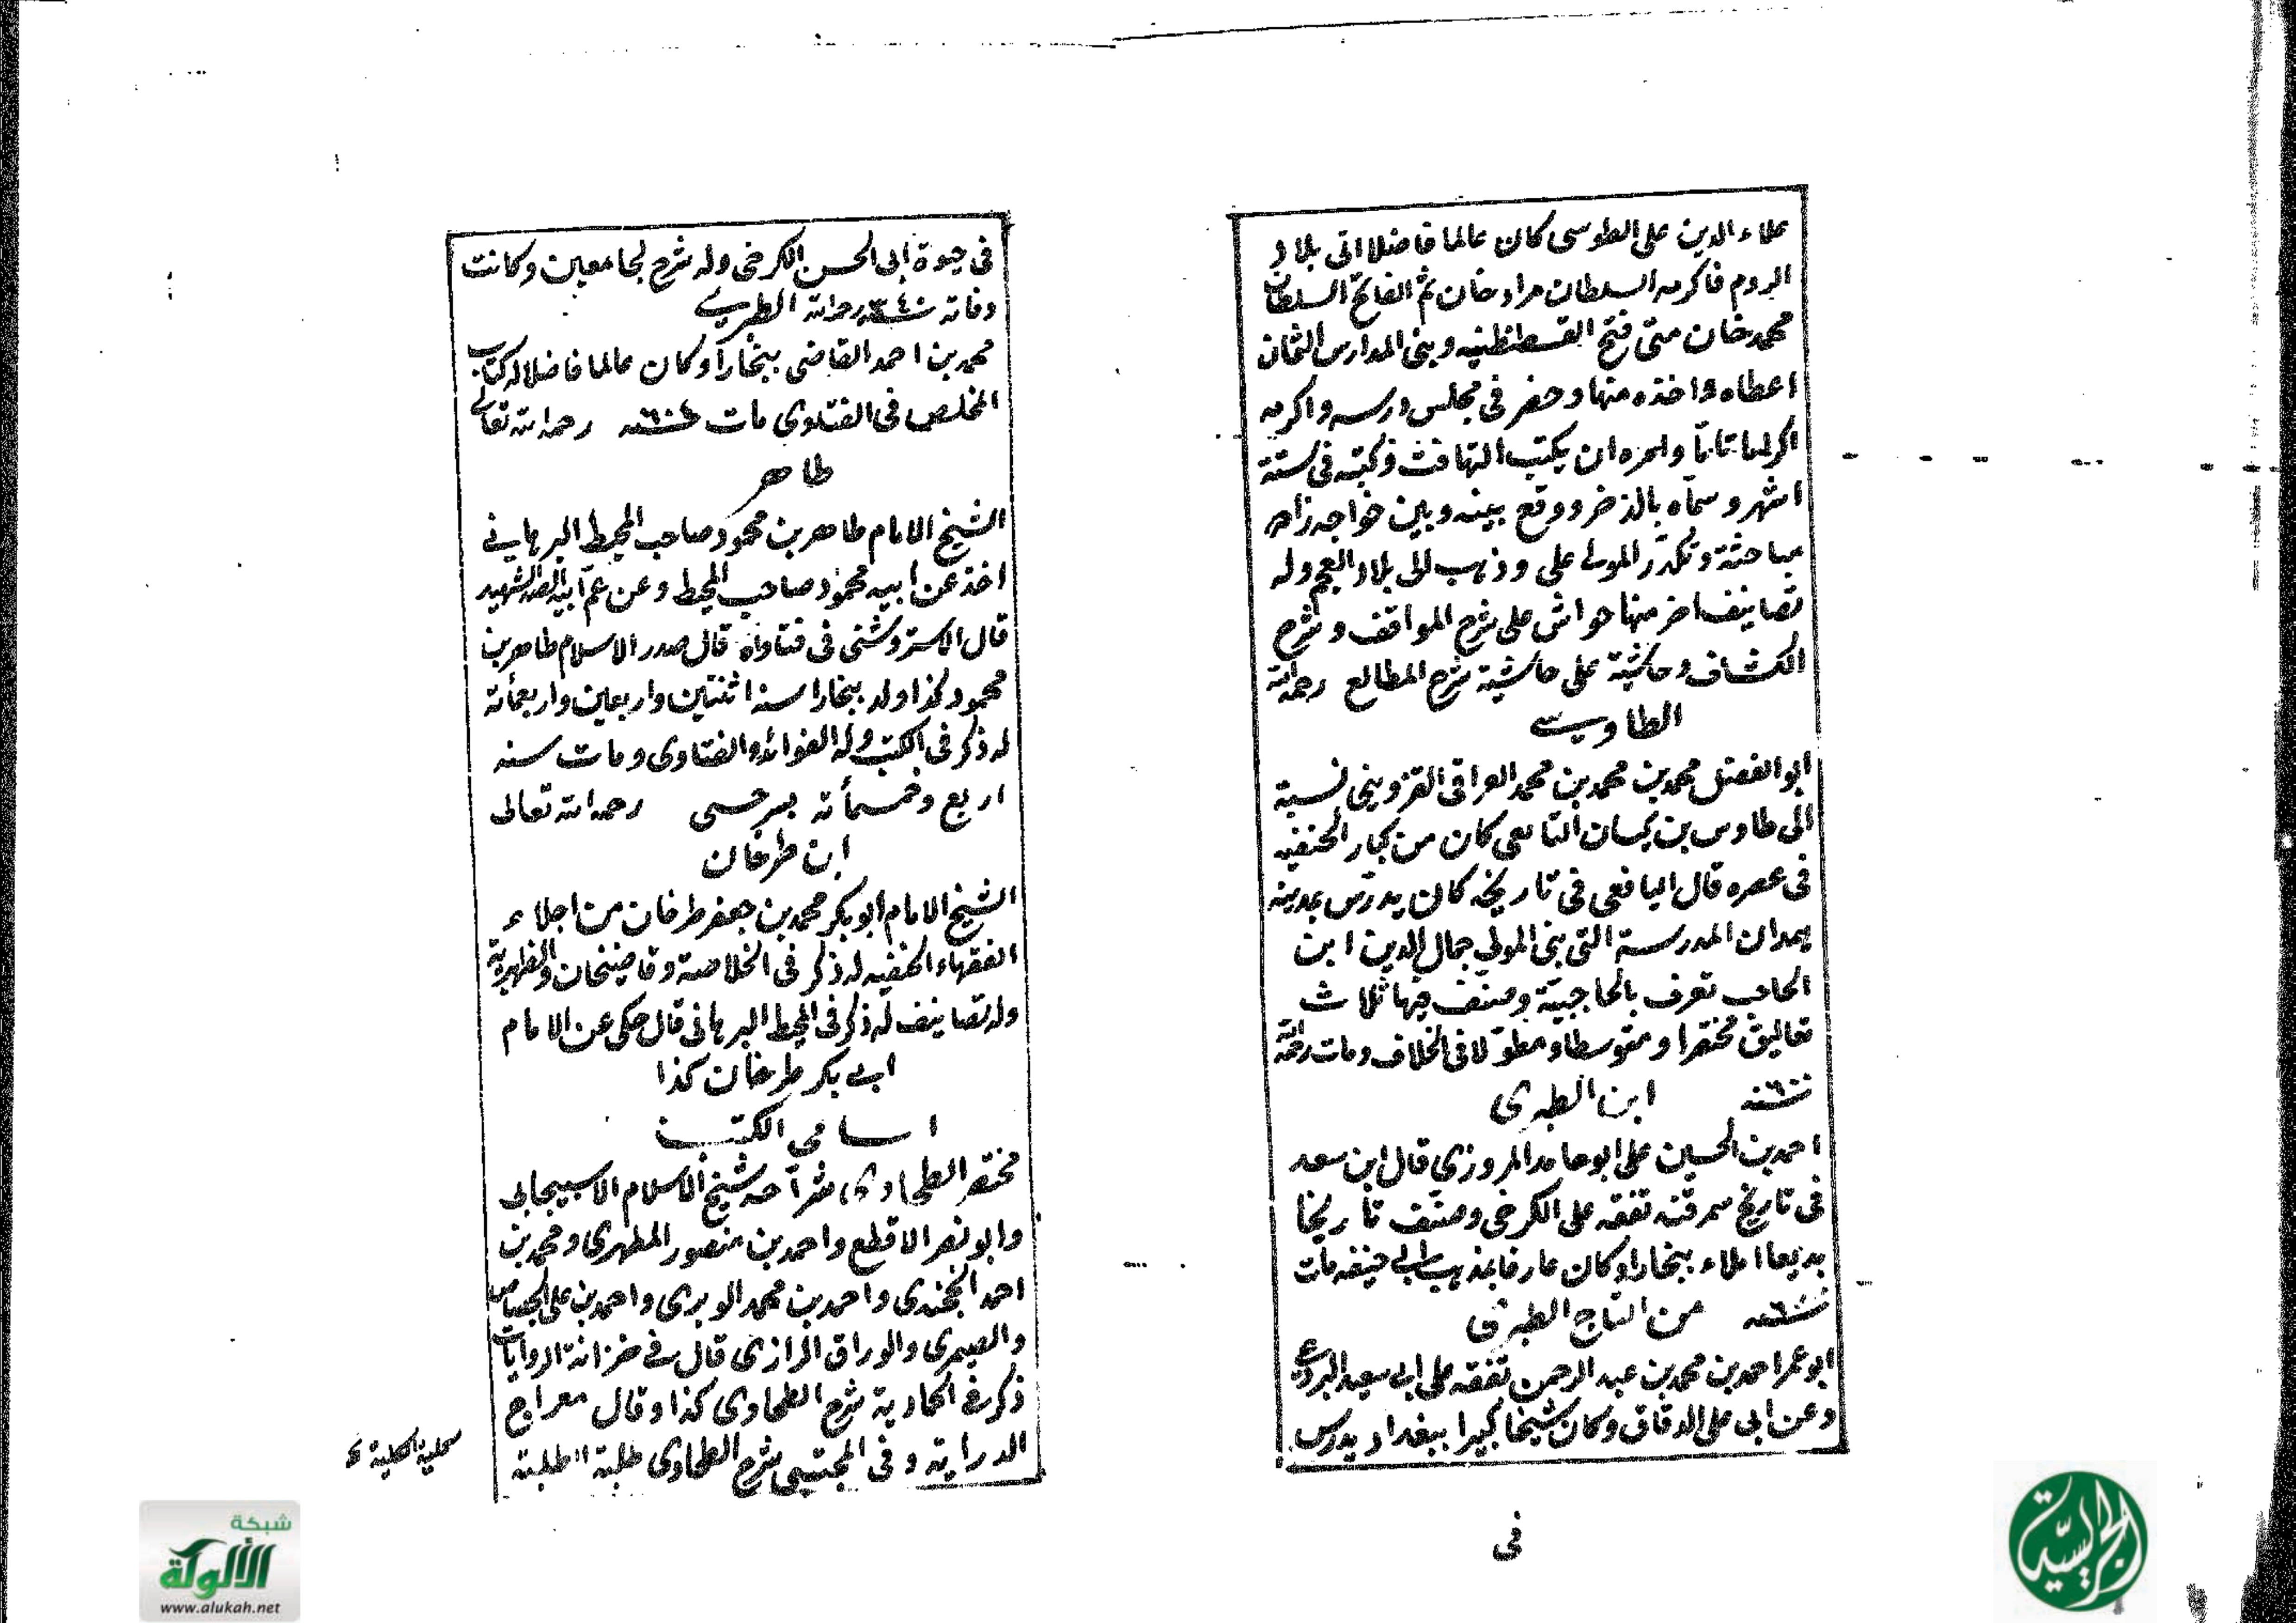 علاء الدين على الطوسى كان عالما فاضلا اتى بلاد
الروم فاكرمه السلطان مراد خان ثم الفاتح السلطان
محمد خان متى فتح القسطنطنيه وبنى المدارس الثمان
اعطاه واخذه منها وحضر فى مجلس درسه واكرمه
اكراما تاما وامره ان يكتب التهافت فكتبه فى ستة
اشهر وسماه بالذخر ووقع بينه وبين خواجه زاده
مباحثة وتكدر المولى على وذهب الى بلاد العجم وله
تصانيف اخر منها حواش على شرح المواقف وشرح
الكشاف وحاشية على حاشية شرح المطالع رحمه الله
الطاوسى
ابو الفضل محمد بن محمد بن محمد العراقى القزوينى نسبة
الى طاوس بن كيسان التابعى كان من كبار الحنفيه
فى عصره قال اليافعى فى تاريخه كان يدرس بمدينه
همدان المدرسة التى بنى المولى جمال الدين ابن
الحاجب تعرف بالحاجبية وصنف فيها ثلاث
تعاليق مختصرا ومتوسطا ومطولا فى الخلاف ومات رحمه الله
ابن الطبرى
احمد بن الحسين على ابو حامد المروزى قال ابن سعد
فى تاريخ سمرقند تفقه على الكرخى وصنف تاريخا
بديعا املاء ببخارا وكان عارفا بمذهب ابى حنيفه مات
من التاج الطبرى
ابو عمر احمد بن محمد بن عبد الرحمن تفقه على ابى سعيد البردعى
وعن ابى على الدقاق وكان شيخا كبيرا ببغداد يدرس
فى
فى حيوة ابى الحسن الكرخى وله شرح لجامعين وكانت
وفاته سنة ٣٤٠ رحمه الله الطبرى
محمد بن احمد القاضى ببخارا وكان عالما فاضلا له كتاب
المخلص فى الفتاوى مات رحمه الله تعالى
طاهر
الشيخ الامام طاهر بن محمود صاحب المحيط البرهانى
اخذ عن ابيه محمود صاحب المحيط وعن عم ابيه الصدر الشهيد
قال الاستروشنى فى فتاواه قال صدر الاسلام طاهر بن
محمود كذا ولد ببخارا سنة اثنتين واربعين واربعمأته
له ذكر فى الكتب وله الفوائد والفتاوى ومات سنه
اربع وخمسمأته بسرخسى رحمه الله تعالى
ابن طرخان
الشيخ الامام ابو بكر محمد بن جعفر طرخان من اجلاء
الفقهاء الحنفيه له ذكر فى الخلاصة وقاضيخان والظهيرية
وله تصانيف له ذكر فى المحيط البرهانى قال حكى عن الامام
ابى بكر طرخان كذا
اسامى الكتب
مختصر الطحاوى شراحه شيخ الاسلام الاسبيجابى
وابو نصر الاقطع واحمد بن منصور المطهرى ومحمد بن
احمد الخجندى واحمد بن محمد الوبرى واحمد بن على الجصاص
والصيمرى والوراق الرازى قال فى خزانة الروايات
ذكر فى الحاوية شرح الطحاوى كذا وقال معراج
الدراية وفى المجتبى شرح الطحاوى طلبة الطلبة
شبكة
الألوكة
www.alukah.net